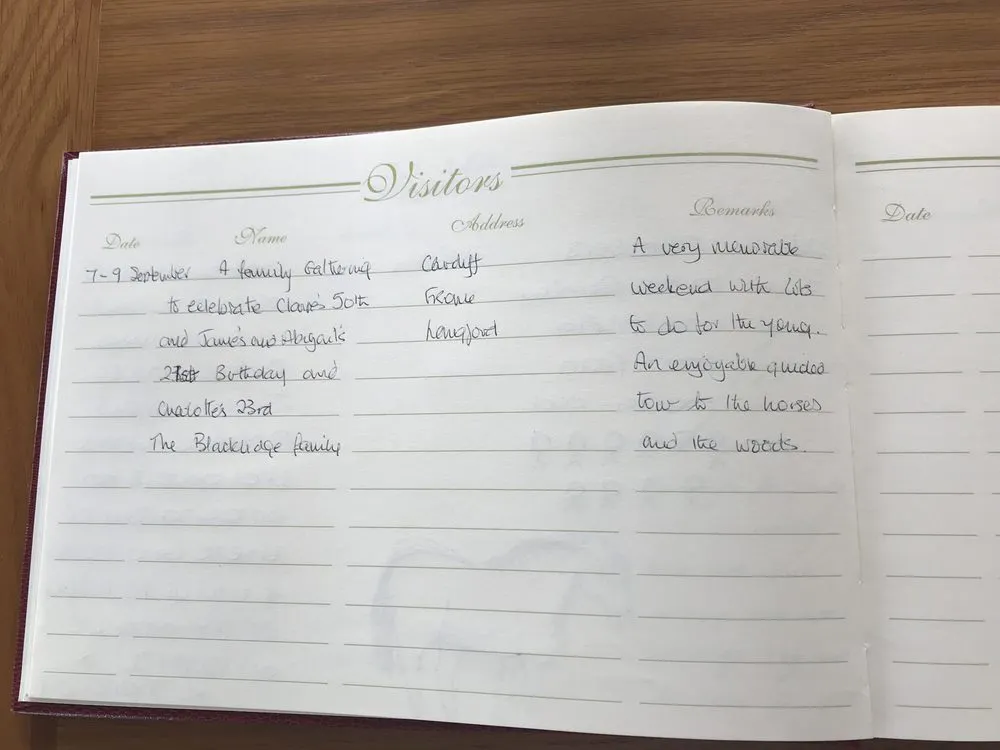 Visitors
Date Name Address Remarks Date
7-9 September A family Gathering Cardiff A very memorable
to celebrate Claire's 50th Frome weekend with lots
and James and Abigail's Longford to do for the young.
21st Birthday and An enjoyable guided
Charlotte's 23rd tour to the horses
The Blackledge family and the woods.